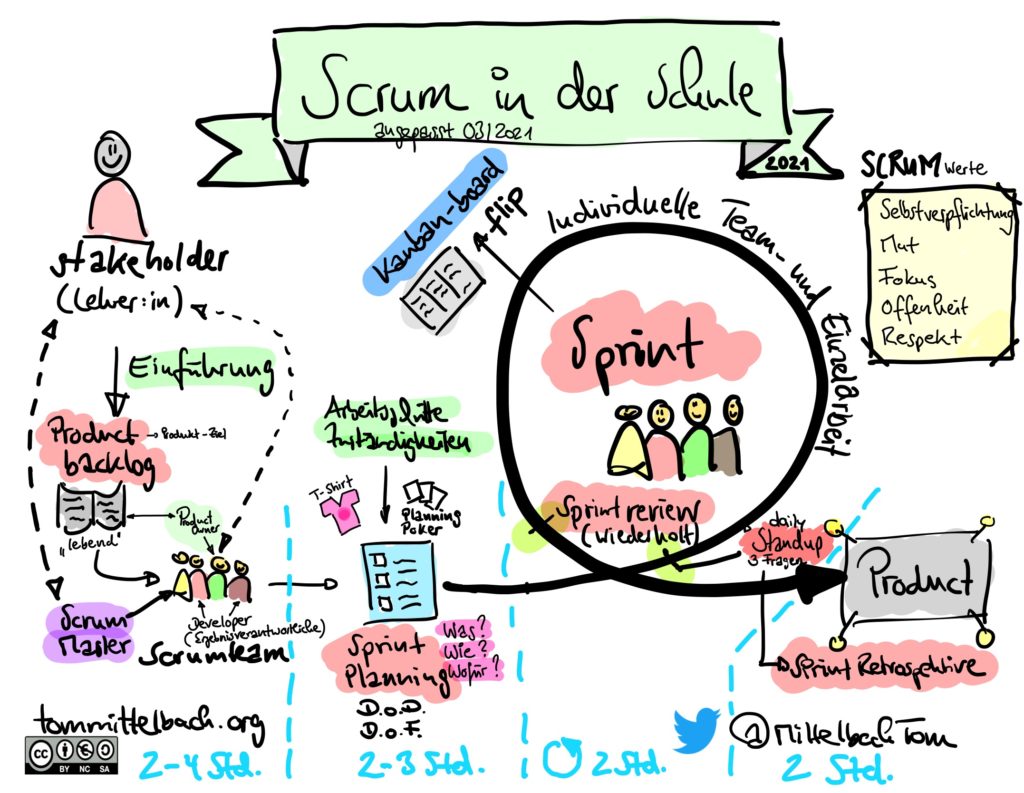 Scrum in der Schule
angepasst 03/2021
2021
SCRUM Werte
Selbstverpflichtung
Mut
Fokus
Offenheit
Respekt
Stakeholder
(Lehrer:in)
Einführung
Product backlog
→ Produkt-Ziel
"lebend"
Product Owner
Scrum Master
Developer
(Ergebnisverantwortliche)
Scrumteam
Kanban-board
flip
Individuelle Team- und Einzelarbeit
Sprint
Arbeitsschritte
Zuständigkeiten
T-Shirt
Planning Poker
Sprint Planning
Was?
Wie?
Wofür?
D.o.D.
D.o.F.
Sprint review
(wiederholt)
daily
Standup
3 Fragen
Product
Sprint Retrospektive
tommittelbach.org
@MittelbachTom
CC BY NC SA
2-4 Std.
2-3 Std.
2 Std.
2 Std.